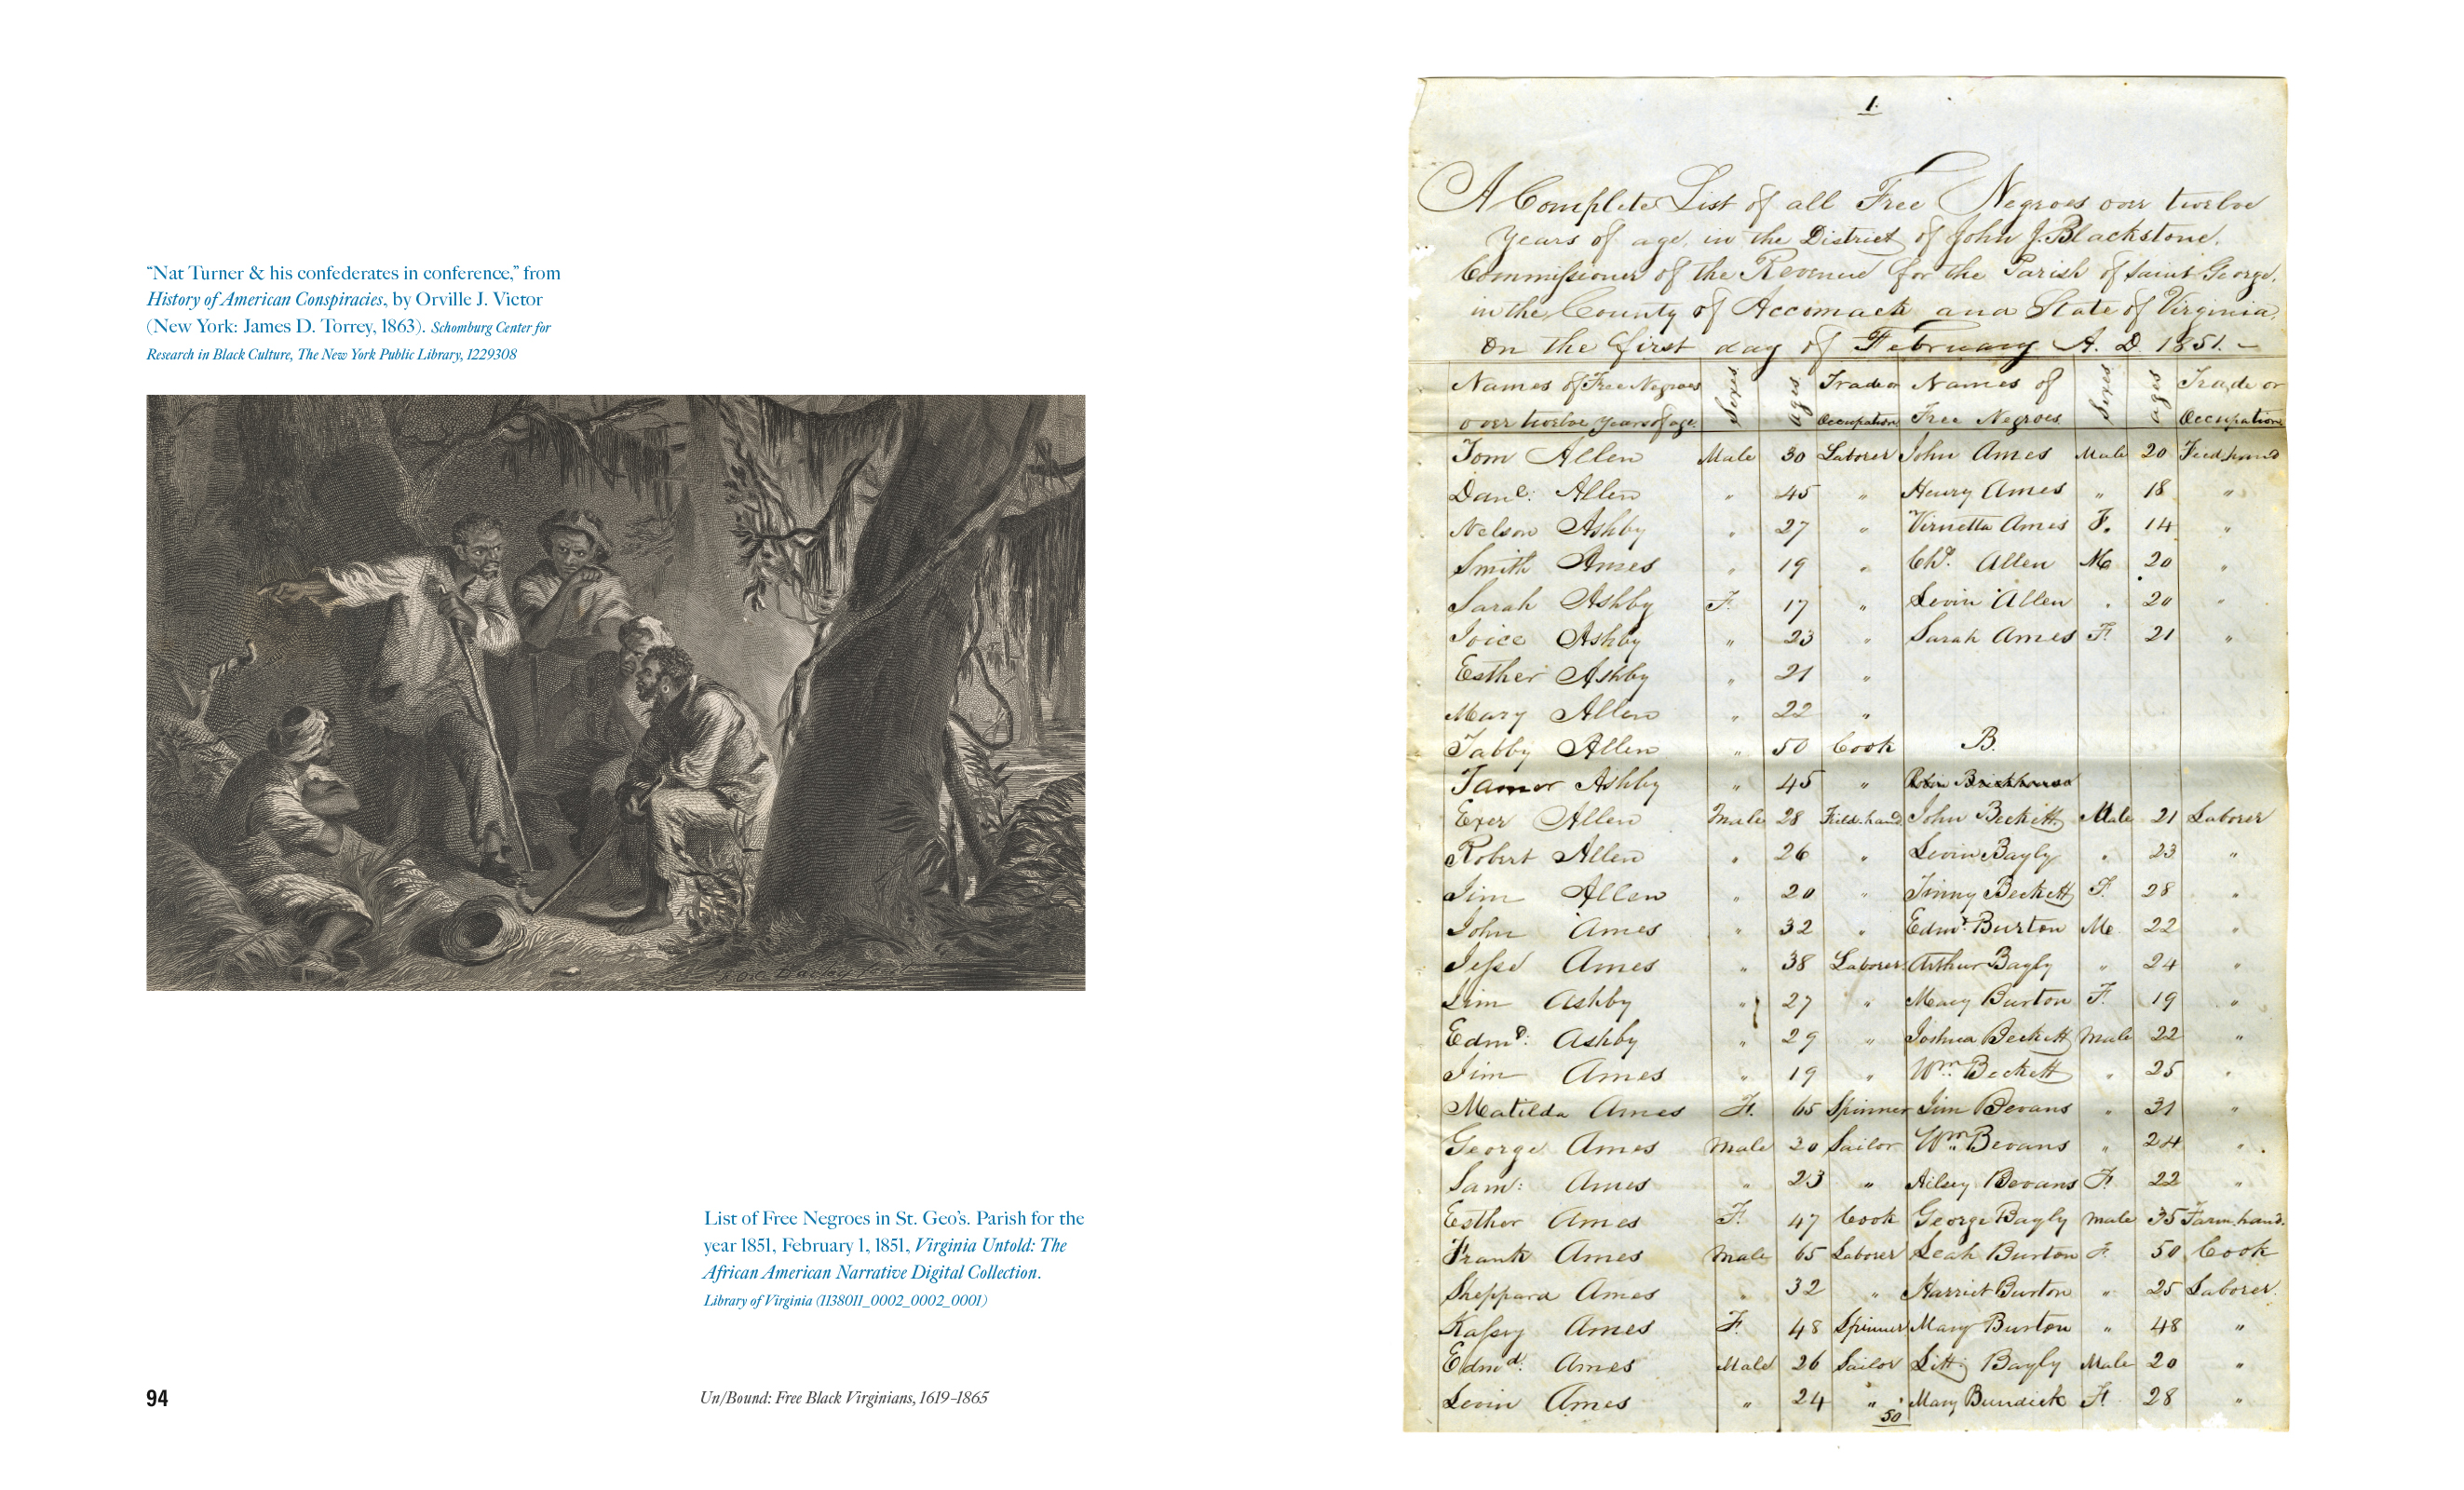 “Nat Turner & his confederates in conference,” from
History of American Conspiracies, by Orville J. Victor
(New York: James D. Torrey, 1863). Schomburg Center for
Research in Black Culture, The New York Public Library, 1229308
List of Free Negroes in St. Geo’s. Parish for the
year 1851, February 1, 1851, Virginia Untold: The
African American Narrative Digital Collection.
Library of Virginia (1138011_0002_0002_0001)
94
Un/Bound: Free Black Virginians, 1619–1865
1.
A Complete List of all Free Negroes over twelve
years of age, in the District of John J. Blackstone,
Commissioner of the Revenue for the Parish of Saint George,
in the County of Accomack and State of Virginia,
on the first day of February A. D. 1851. –
Names of Free Negroes Sexes ages Trade or Names of Sexes ages Trade or
over twelve years of age. Occupation Free Negroes. Occupation
Tom Allen Male 30 Laborer John Ames Male 20
Danl: Allen " 45 " Henry Ames " 18 "
Nelson Ashby " 27 " Virnetta Ames F. 14 "
Smith Ames " 19 " Allen M 20 "
Sarah Ashby F. 17 " Levin Allen " 20 "
Joice Ashby " 23 " Sarah Ames F. 21 "
Esther Ashby " 21 "
Mary Allen " 22 "
Tabby Allen " 50 Cook B.
Tamor Ashby " 45 "
Exer Allen Male 28 Field hand John Beckett Male 21 Laborer
Robert Allen " 26 " Levin Bayly " 23 "
Jim Allen " 20 " Jinny Beckett F. 28 "
John Ames " 32 " Edmd. Burton M. 22 "
Jesse Ames " 38 Laborer Arthur Bayly " 24 "
Jim Ashby " 27 " Mary Burton F. 19 "
Edmd: Ashby " 29 " Joshua Beckett Male 22 "
Jim Ames " 19 " Wm. Beckett " 25 "
Matilda Ames F. 65 Spinner Jim Bevans " 31 "
George Ames Male 20 Sailor Wm. Bevans " 24 "
Sam: Ames " 23 " Ailsey Bevans F. 22 "
Esther Ames F. 47 Cook George Bayly Male 35 Farm hand.
Frank Ames Male 65 Laborer Leah Burton F. 50 Cook
Sheppard Ames " 32 " Harriet Burton " 25 Laborer.
Kassy Ames F. 48 Spinner Mary Burton " 48 "
Edmd: Ames Male 26 Sailor Bayly Male 20 "
Levin Ames " 24 " Mary Bundick F. 28 "
50